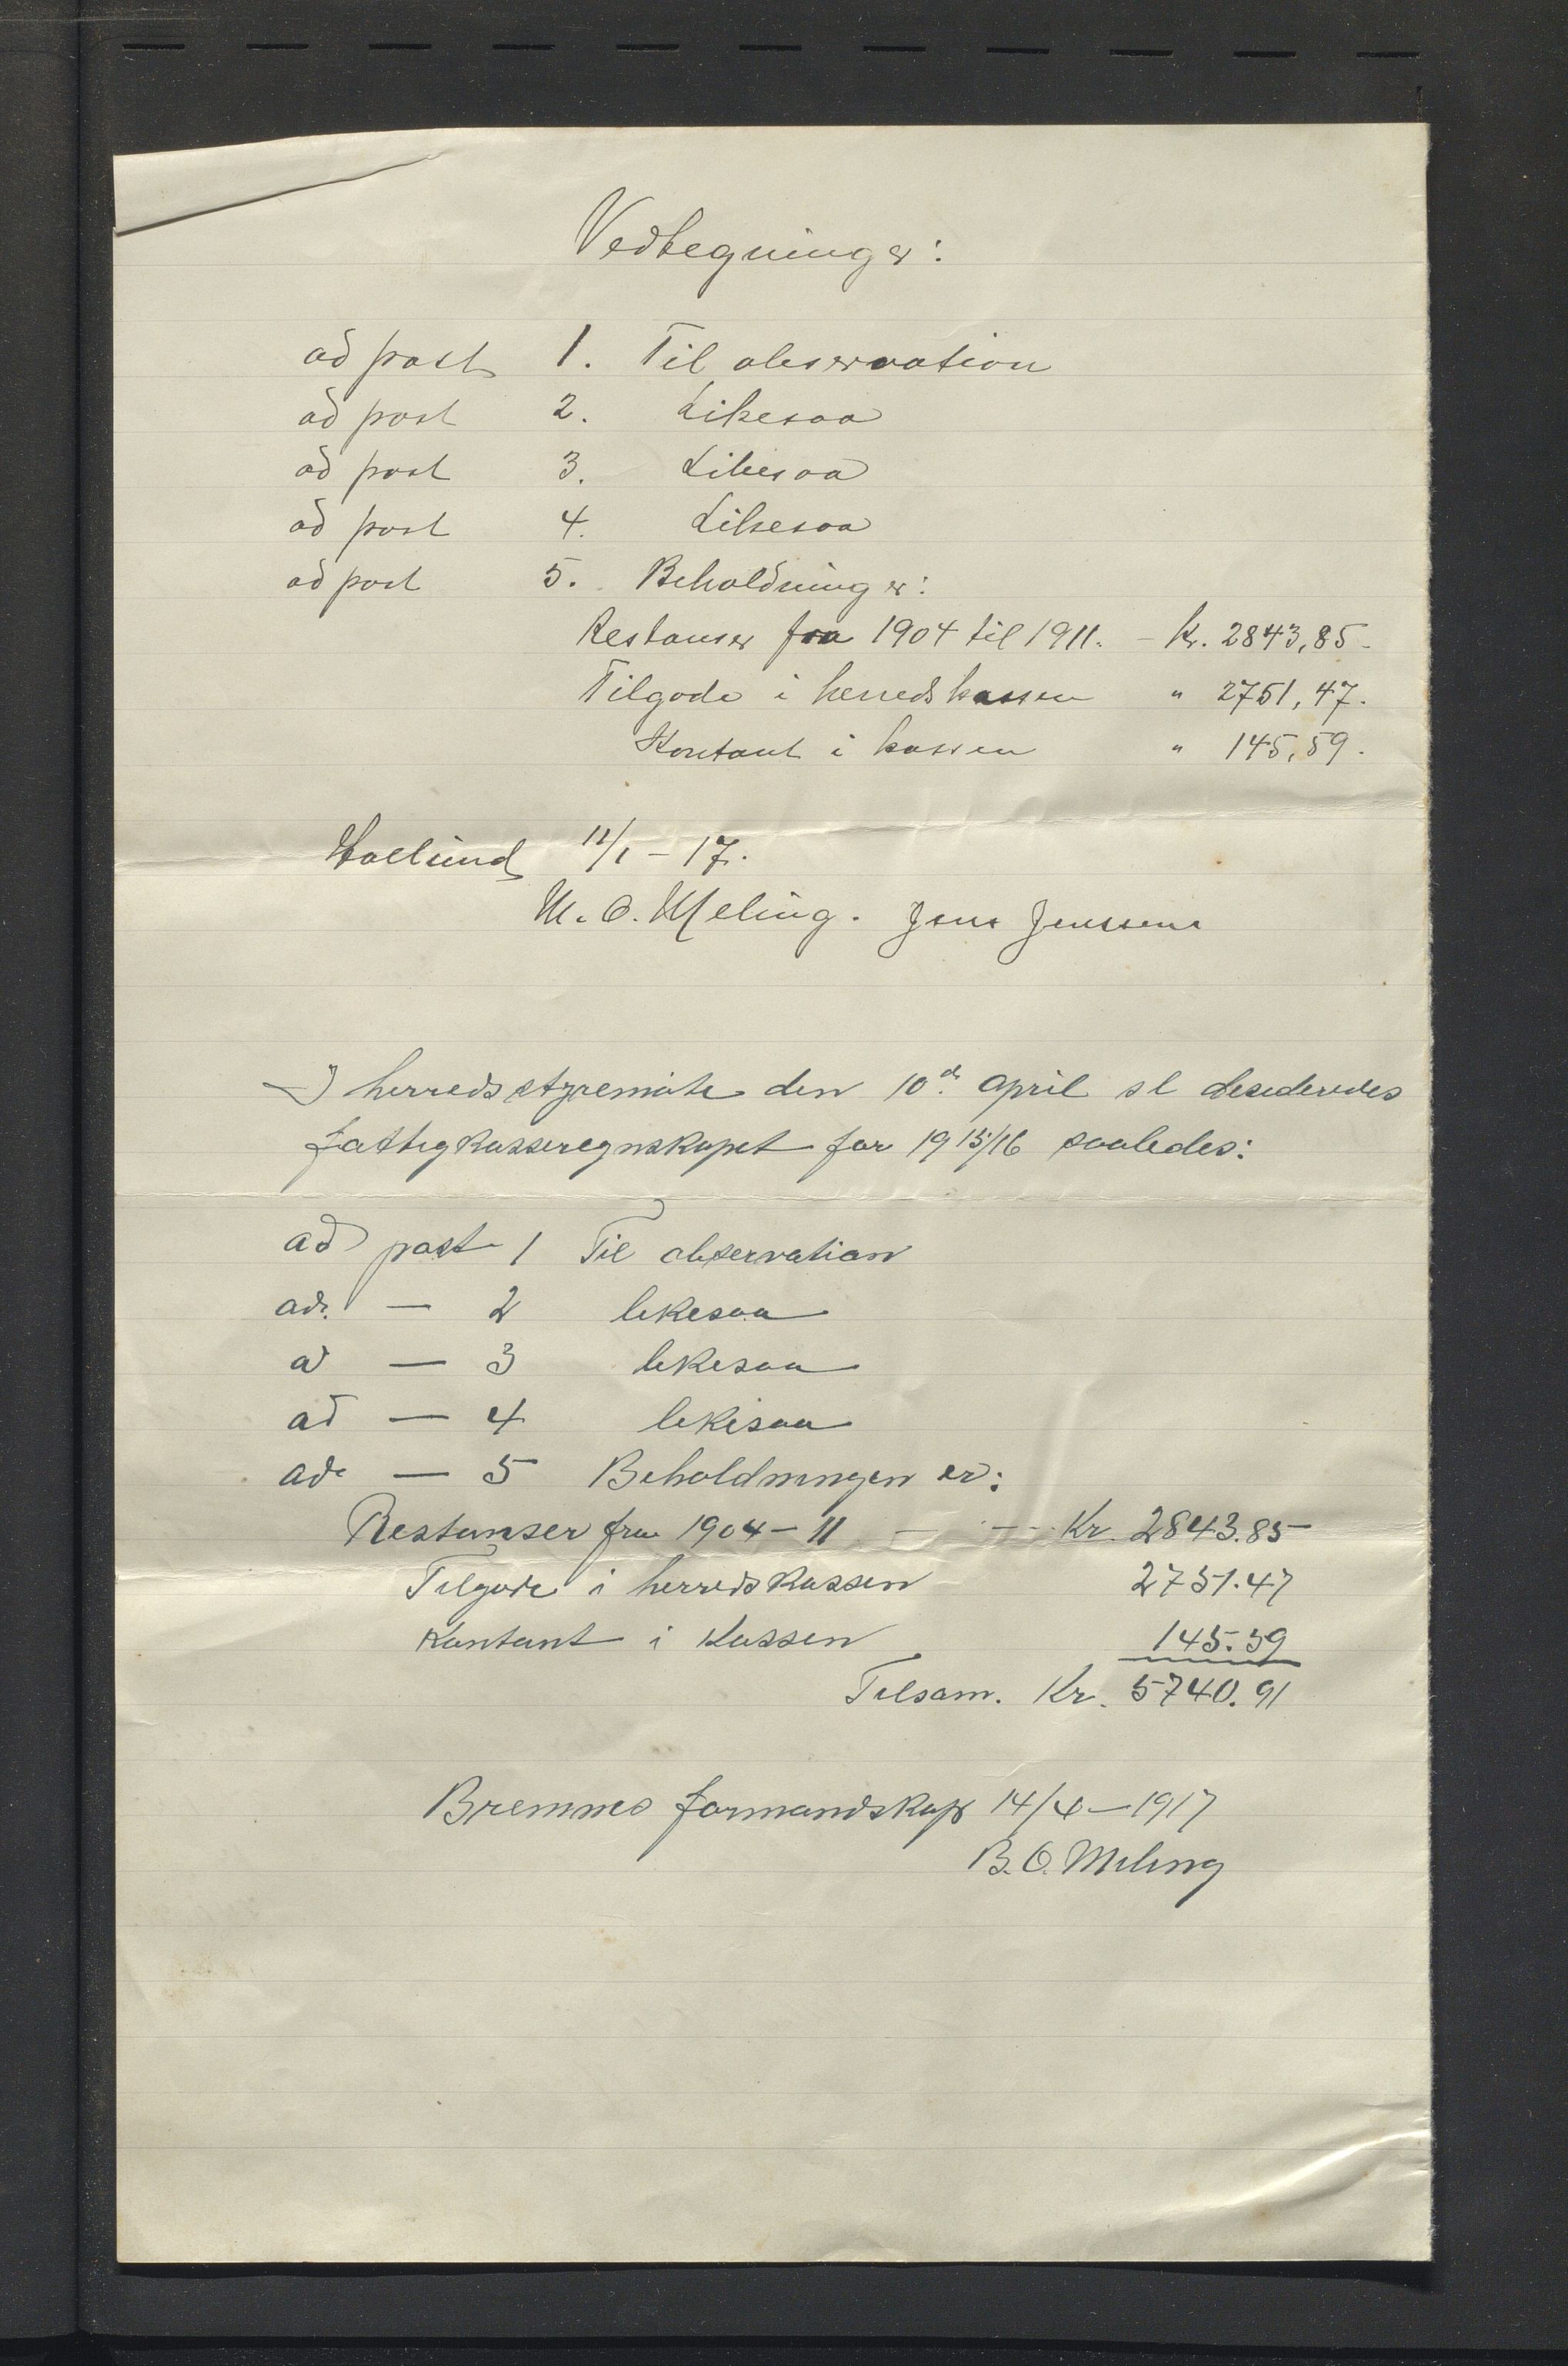 Vedtegninger:
ad post 1. Til observation
ad post 2. Likesaa
ad post 3. Likesaa
ad post 4. Likesaa
ad post 5. Beholdninger:
Restanser fra 1904 til 1911. - Kr. 2843,85.
Tilgode i herredskassen " 2751,47.
Kontant i kassen " 145,59.
Hollund 12/1 - 17.
M. O. Meling. Jens Jenssens
I herredsstyremøte den 10de april sl desideredes
fattigkasseregnskapet for 1915/16 saaledes:
ad post 1 Til observation
ad. — 2 likesaa
ad — 3 likesaa
ad — 4 likesaa
ad. — 5 Beholdningen er:
Restanser fra 1904 - 11 — - - - Kr. 2843.85
Tilgode i herredskassen 2751.47
Kontant i Kassen 145.59
Tilsam. Kr. 5740.91
Bremnes formandskap 14/4 - 1917
B. O. Meling